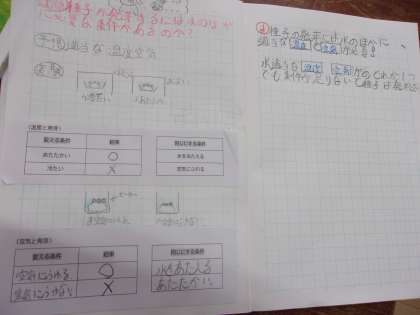 種子が発芽するには水のほかに
必要な条件があるのか?
予想 適当な温度空気
実験
(温度と発芽)
変える条件 結果 同じにする条件
あたたかい ○ 水をあたえる
冷たい × 空気にふれる
(空気と発芽)
変える条件 結果 同じにする条件
空気にふれる ○ 水をあたえる
空気にふれない × あたたかい
種子の発芽には水のほかに
適当な温度と空気が必要!
水適当な温度 空気 のどれか1つ
でも条件が足りないと種子は発芽